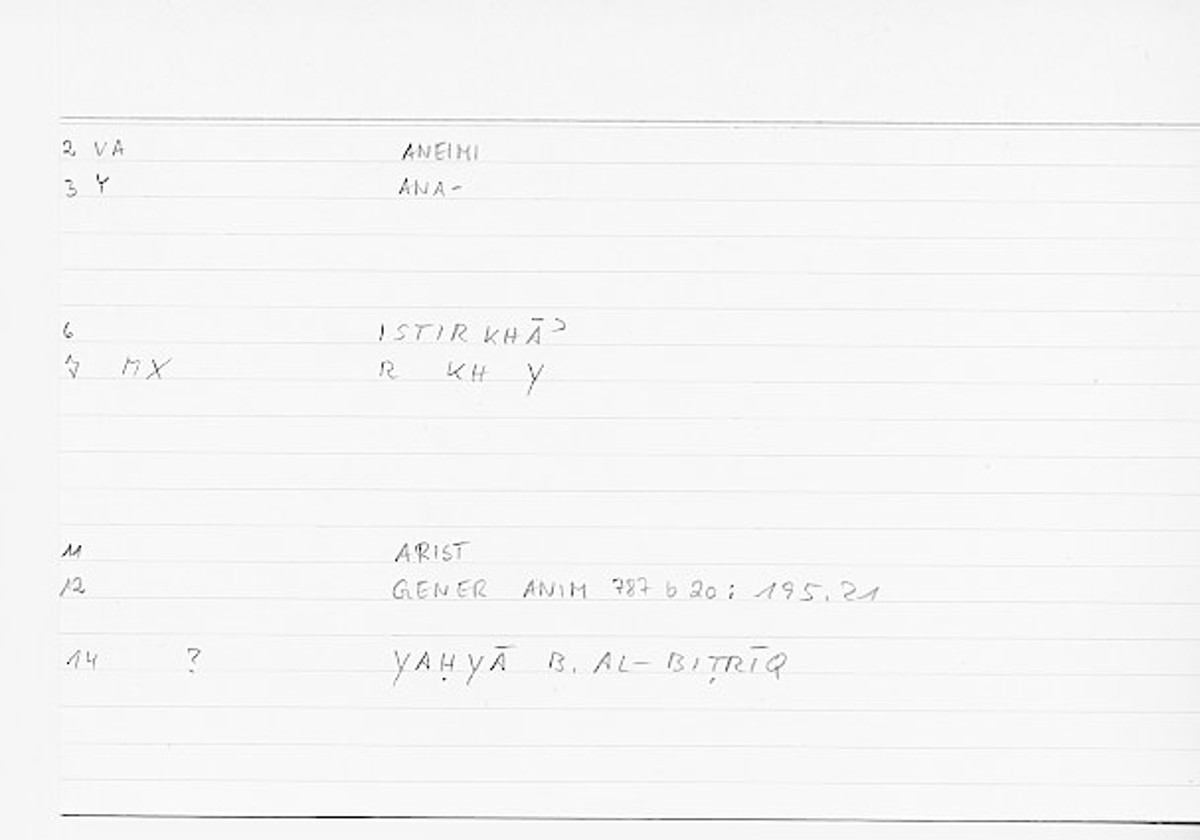 2 VA ANEIMI
3 Y ANA-
6 ISTIRKHĀʾ
7 MX R KH Y
11 ARIST
12 GENER ANIM 787 b 20 : 195.21
14 ? YAḤYĀ B. AL-BIṬRĪQ